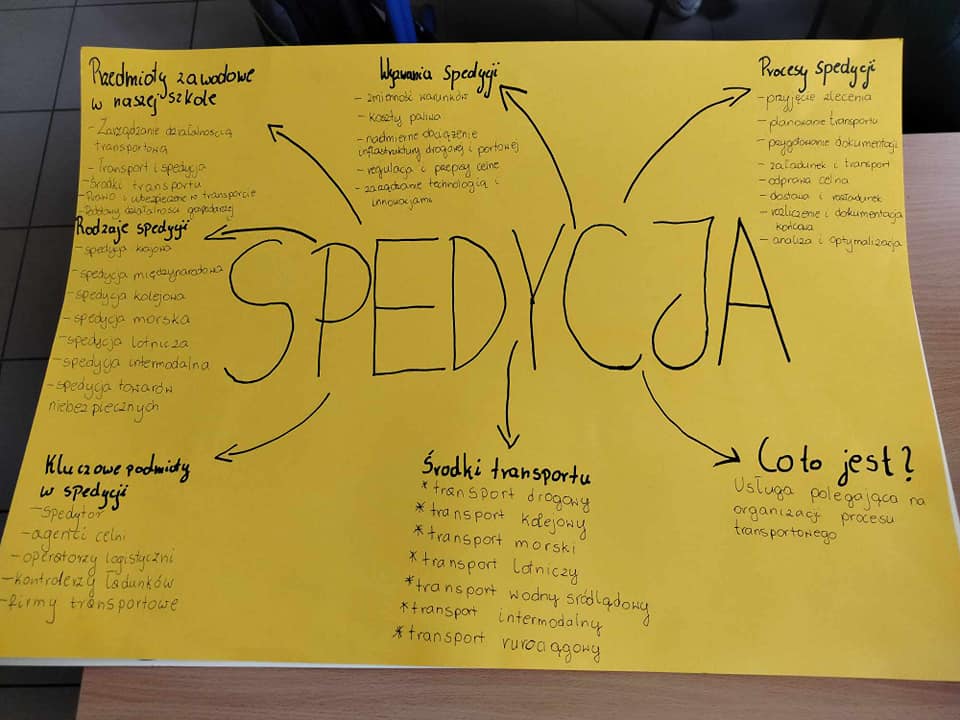 Przedmioty zawodowe
w naszej szkole
- Zarządzanie działalnością
transportową
- Transport i spedycja
- Środki transportu
- Prawo i ubezpieczenie w transporcie
- Podstawy działalności gospodarczej
Wyzwania spedycji
- zmienność warunków
- koszty paliwa
- nadmierne obciążenie
infrastruktury drogowej i portowej
- regulacja i przepisy celne
- zarządzanie technologią i
innowacjami
Procesy spedycji
- przyjęcie zlecenia
- planowanie transportu
- przygotowanie dokumentacji
- załadunek i transport
- odprawa celna
- dostawa i rozładunek
- rozliczenie i dokumentacja
końcowa
- analiza i optymalizacja
Rodzaje spedycji
- spedycja krajowa
- spedycja międzynarodowa
- spedycja kolejowa
- spedycja morska
- spedycja lotnicza
- spedycja intermodalna
- spedycja towarów
niebezpiecznych
SPEDYCJA
Kluczowe podmioty
w spedycji
- spedytor
- agenci celni
- operatorzy logistyczni
- kontrolerzy ładunków
- firmy transportowe
Środki transportu
* transport drogowy
* transport kolejowy
* transport morski
* transport lotniczy
* transport wodny śródlądowy
* transport intermodalny
* transport rurociągowy
Co to jest?
Usługa polegająca na
organizacji procesu
transportowego